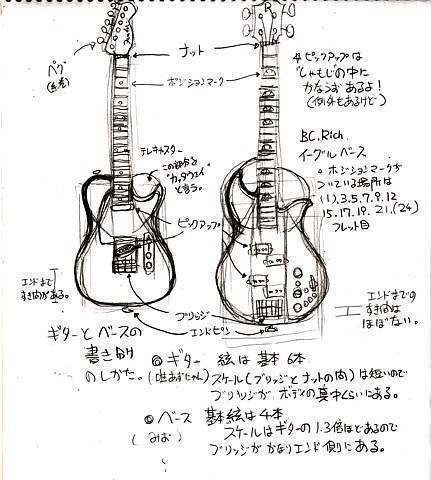 ナット
ペグ
(糸巻)
ポジションマーク
テレキャスター
この部分を
"カッタウェイ"
と言う。
ピックアップ
ブリッジ
エンドピン
エンドまで
すき間がある。
R
※ピックアップは
しゃもじの中に
かならずあるよ!
(例外もあるけど)
B.C.Rich
イーグルベース
○ポジションマークが
ついている場所は
(1).3.5.7.9.12
15.17.19.21.(24)
フレット目
エンドまでの
すき間は
ほぼない。
ギターとベースの
書き別
のしかた。
◎ギター 絃は基本6本
(唯あずにゃん)
スケール(ブリッジとナットの間)は短いので
ブリッジがボディの真中くらいにある。
◎ベース 基本絃は4本
(みお)
スケールはギターの1.3倍ほどあるので
ブリッジがかなりエンド側にある。